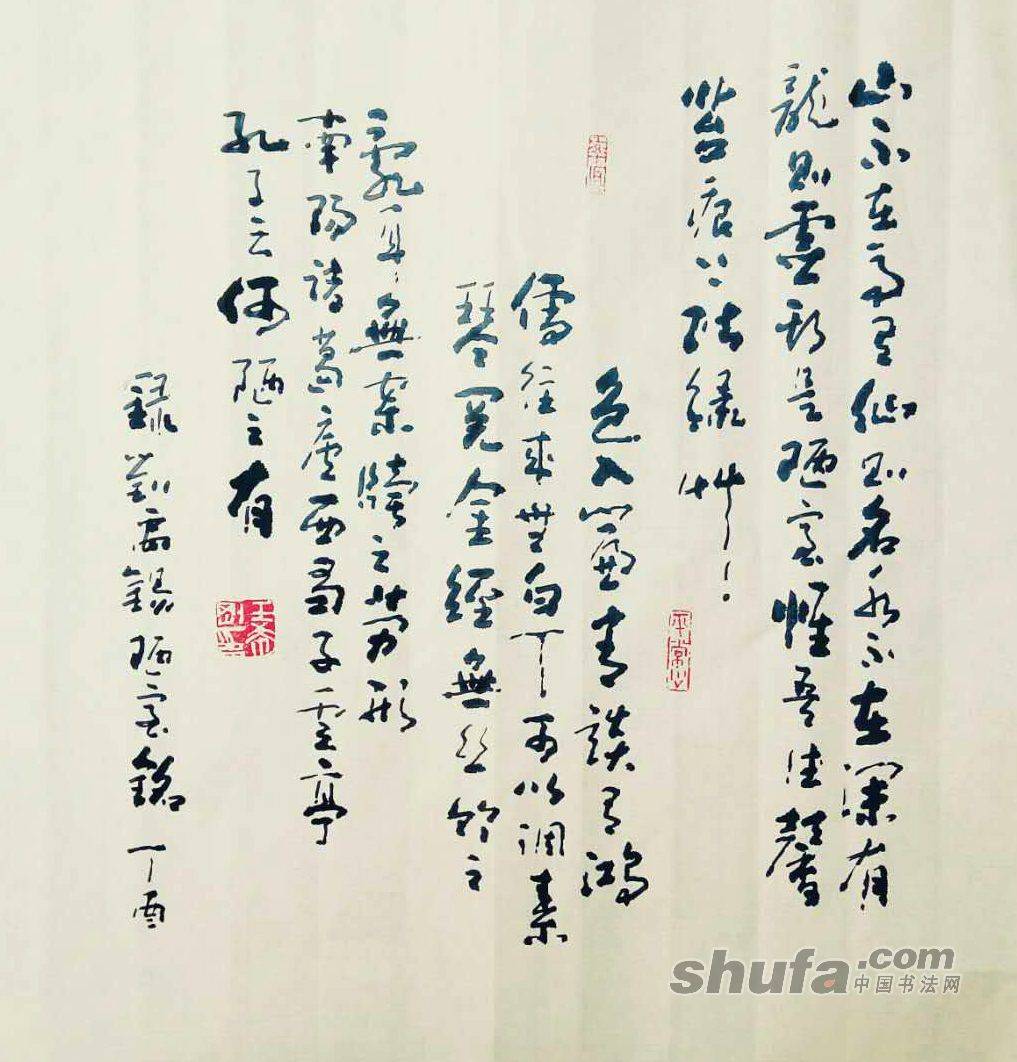 山不在高有仙則名水不在深有
龍則靈斯是陋室惟吾德馨
苔痕上階緑艸
色入簾青談有鴻
儒往来無白丁可以調素
琴閲金經無丝竹之
亂耳無案牘之勞形
南陽諸葛廬西蜀子雲亭
孔子云何陋之有
録劉禹錫陋室銘 丁酉
平常心
shufa.com
中国书法网